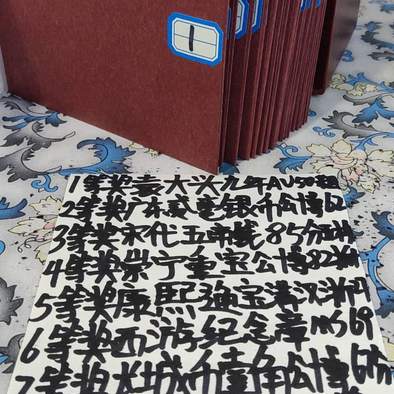 1
1等奖袁大头九年AU50
2等奖广东咸龙银币公博62
3等奖宋代五帝钱85分
4等奖崇宁重宝公博82
5等奖康熙通宝满汉
6等奖西游纪念章MS69
7等奖大城币壹角公博